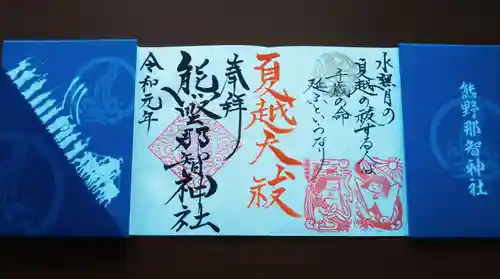 水無月の
夏越の祓する人は
千歳の命
延ぶといふなり
夏越大祓
奉拝
熊野那智神社
令和元年
熊野那智神社